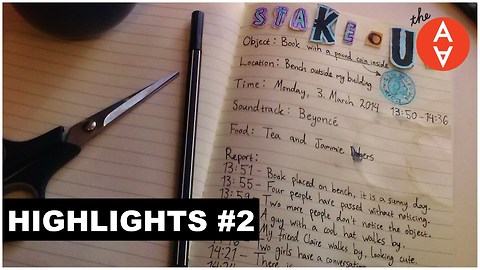 the
STAKE OUT
Object: Book with a pound coin inside
Location: Bench outside my building
Time: Monday, 3. March 2014
13:50-14:36
Soundtrack: Beyoncé
Food: Tea and Jammie
Report:
13:51 - Book placed on bench, it is a sunny day.
13:55 - Four people have passed without noticing.
13:59 Two more people don't notice the object.
A guy with a cool hat walks by.
My friend Claire walks by, looking cute.
14:21 - Two girls have a conversation
14:24 - There is
HIGHLIGHTS #2
A
A